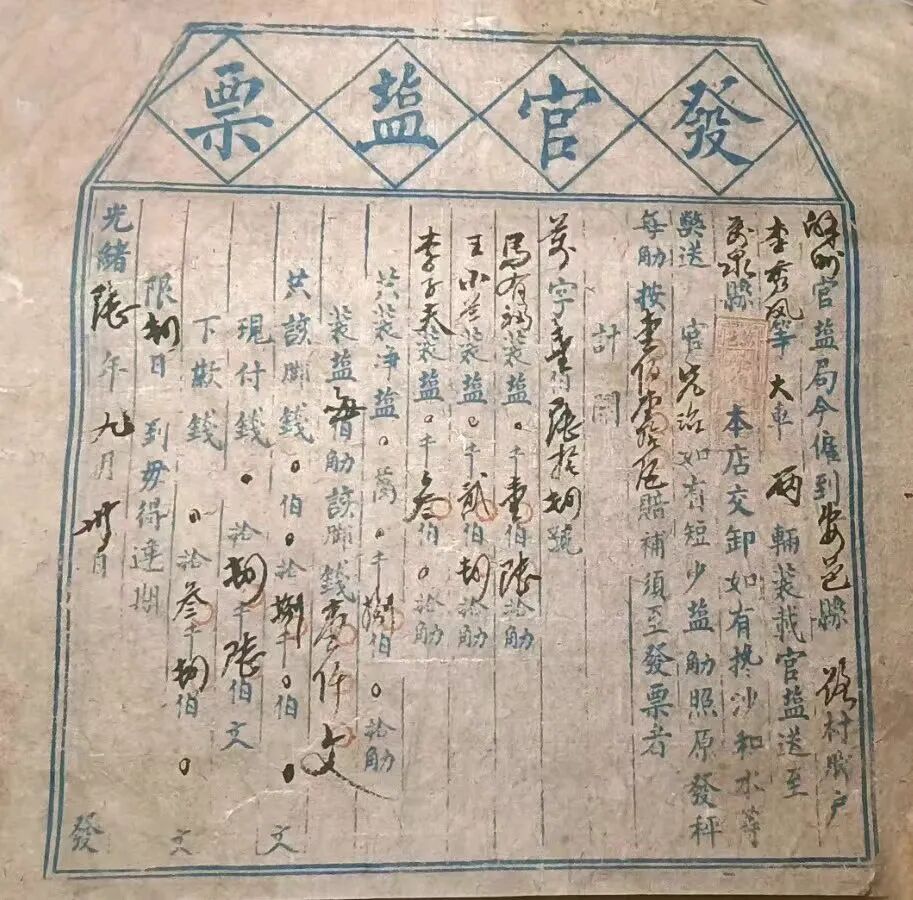 發官盐票
解州官盐局今僱到安邑縣 路村戚户
李秀凤 車大車 两 輛裝载官盐送至
縣 本店交卸如有搀沙和水等
獘送官究治如有短少盐觔照原發秤
每觔按壹佰 賠補須至發票者
計開
字 號
馬有福裝盐。千壹伯陸拾觔
王小 裝盐。千貳伯捌拾觔
李 裝盐。千叁伯。拾觔
共裝净盐。萬。千捌伯。拾觔
裝盐每百觔該脚錢壹仟文
共該脚錢。伯。拾捌千。伯。文
現付錢。拾 千陸伯文
下欺錢。拾叁千 伯。文
限 日到毋得違期
光緒陸年九月廿 日 發